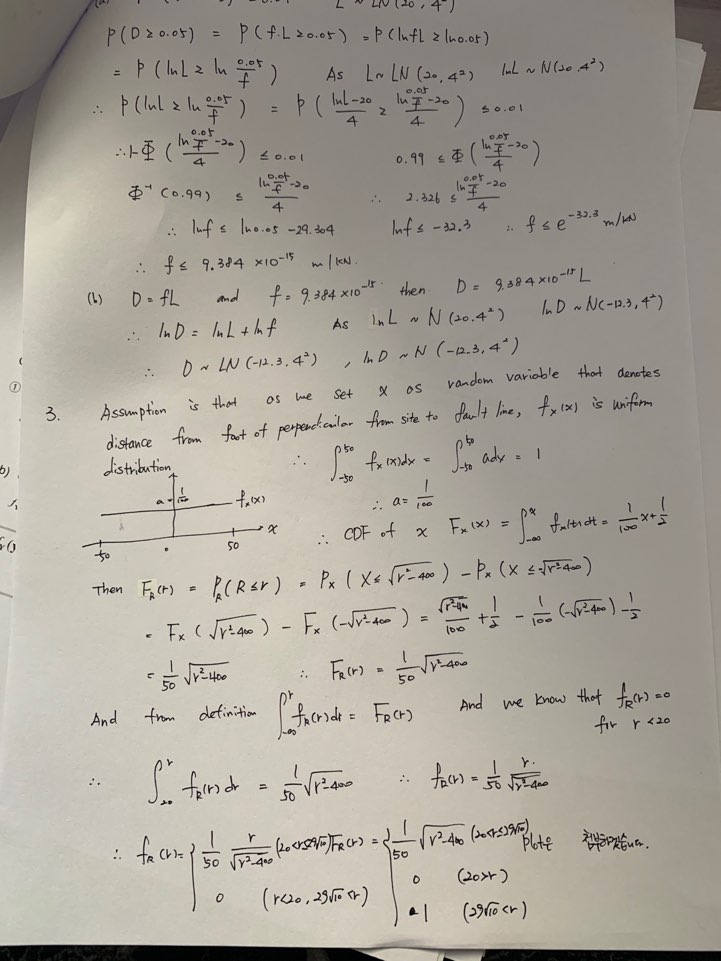 (a) L ~ LN(20, 4²)
P(D ≥ 0.05) = P(f.L ≥ 0.05) = P(lnfL ≥ ln0.05)
= P(lnL ≥ ln 0.05/f) As L ~ LN(20, 4²) lnL ~ N(20, 4²)
∴ P(lnL ≥ ln 0.05/f) = P((lnL-20)/4 ≥ (ln 0.05/f -20)/4) ≤ 0.01
∴ 1-Φ((ln 0.05/f -20)/4) ≤ 0.01 0.99 ≤ Φ((ln 0.05/f -20)/4)
Φ⁻¹(0.99) ≤ (ln 0.05/f -20)/4 ∴ 2.326 ≤ (ln 0.05/f -20)/4
∴ lnf ≤ ln0.05 -29.304 lnf ≤ -32.3 ∴ f ≤ e^-32.3 m/kN
∴ f ≤ 9.384 ×10⁻¹⁵ m/kN.
(b) D = fL and f = 9.384×10⁻¹⁵ then D = 9.384×10⁻¹⁵ L
∴ lnD = lnL + lnf As lnL ~ N(20, 4²) lnD ~ N(-12.3, 4²)
∴ D ~ LN(-12.3, 4²), lnD ~ N(-12.3, 4²)
3. Assumption is that as we set x as random variable that denotes
distance from foot of perpendicular from site to fault line, fx(x) is uniform
distribution ∴ ∫_-50^50 fx(x)dx = ∫_-50^50 adx = 1
a = 1/100 fx(x) ∴ a = 1/100
-50 0 50 x ∴ CDF of x Fx(x) = ∫_-∞^x fx(t)dt = 1/100 x + 1/2
Then F_R(r) = P_R(R ≤ r) = Px(X ≤ √(r²-400)) - Px(X ≤ -√(r²-400))
= Fx(√(r²-400)) - Fx(-√(r²-400)) = √(r²-400)/100 + 1/2 - 1/100(-√(r²-400)) - 1/2
= 1/50 √(r²-400) ∴ F_R(r) = 1/50 √(r²-400)
And from definition ∫_-∞^r f_R(r)dr = F_R(r) And we know that f_R(r)=0
for r < 20
∴ ∫_20^r f_R(r)dr = 1/50 √(r²-400) ∴ f_R(r) = 1/50 r/√(r²-400)
∴ f_R(r) = { 1/50 r/√(r²-400) (20<r≤29√10) F_R(r) = { 1/50 √(r²-400) (20<r≤29√10) plot은 첨부하겠습니다.
0 (r<20, 29√10<r) 0 (20>r)
1 (29√10<r)